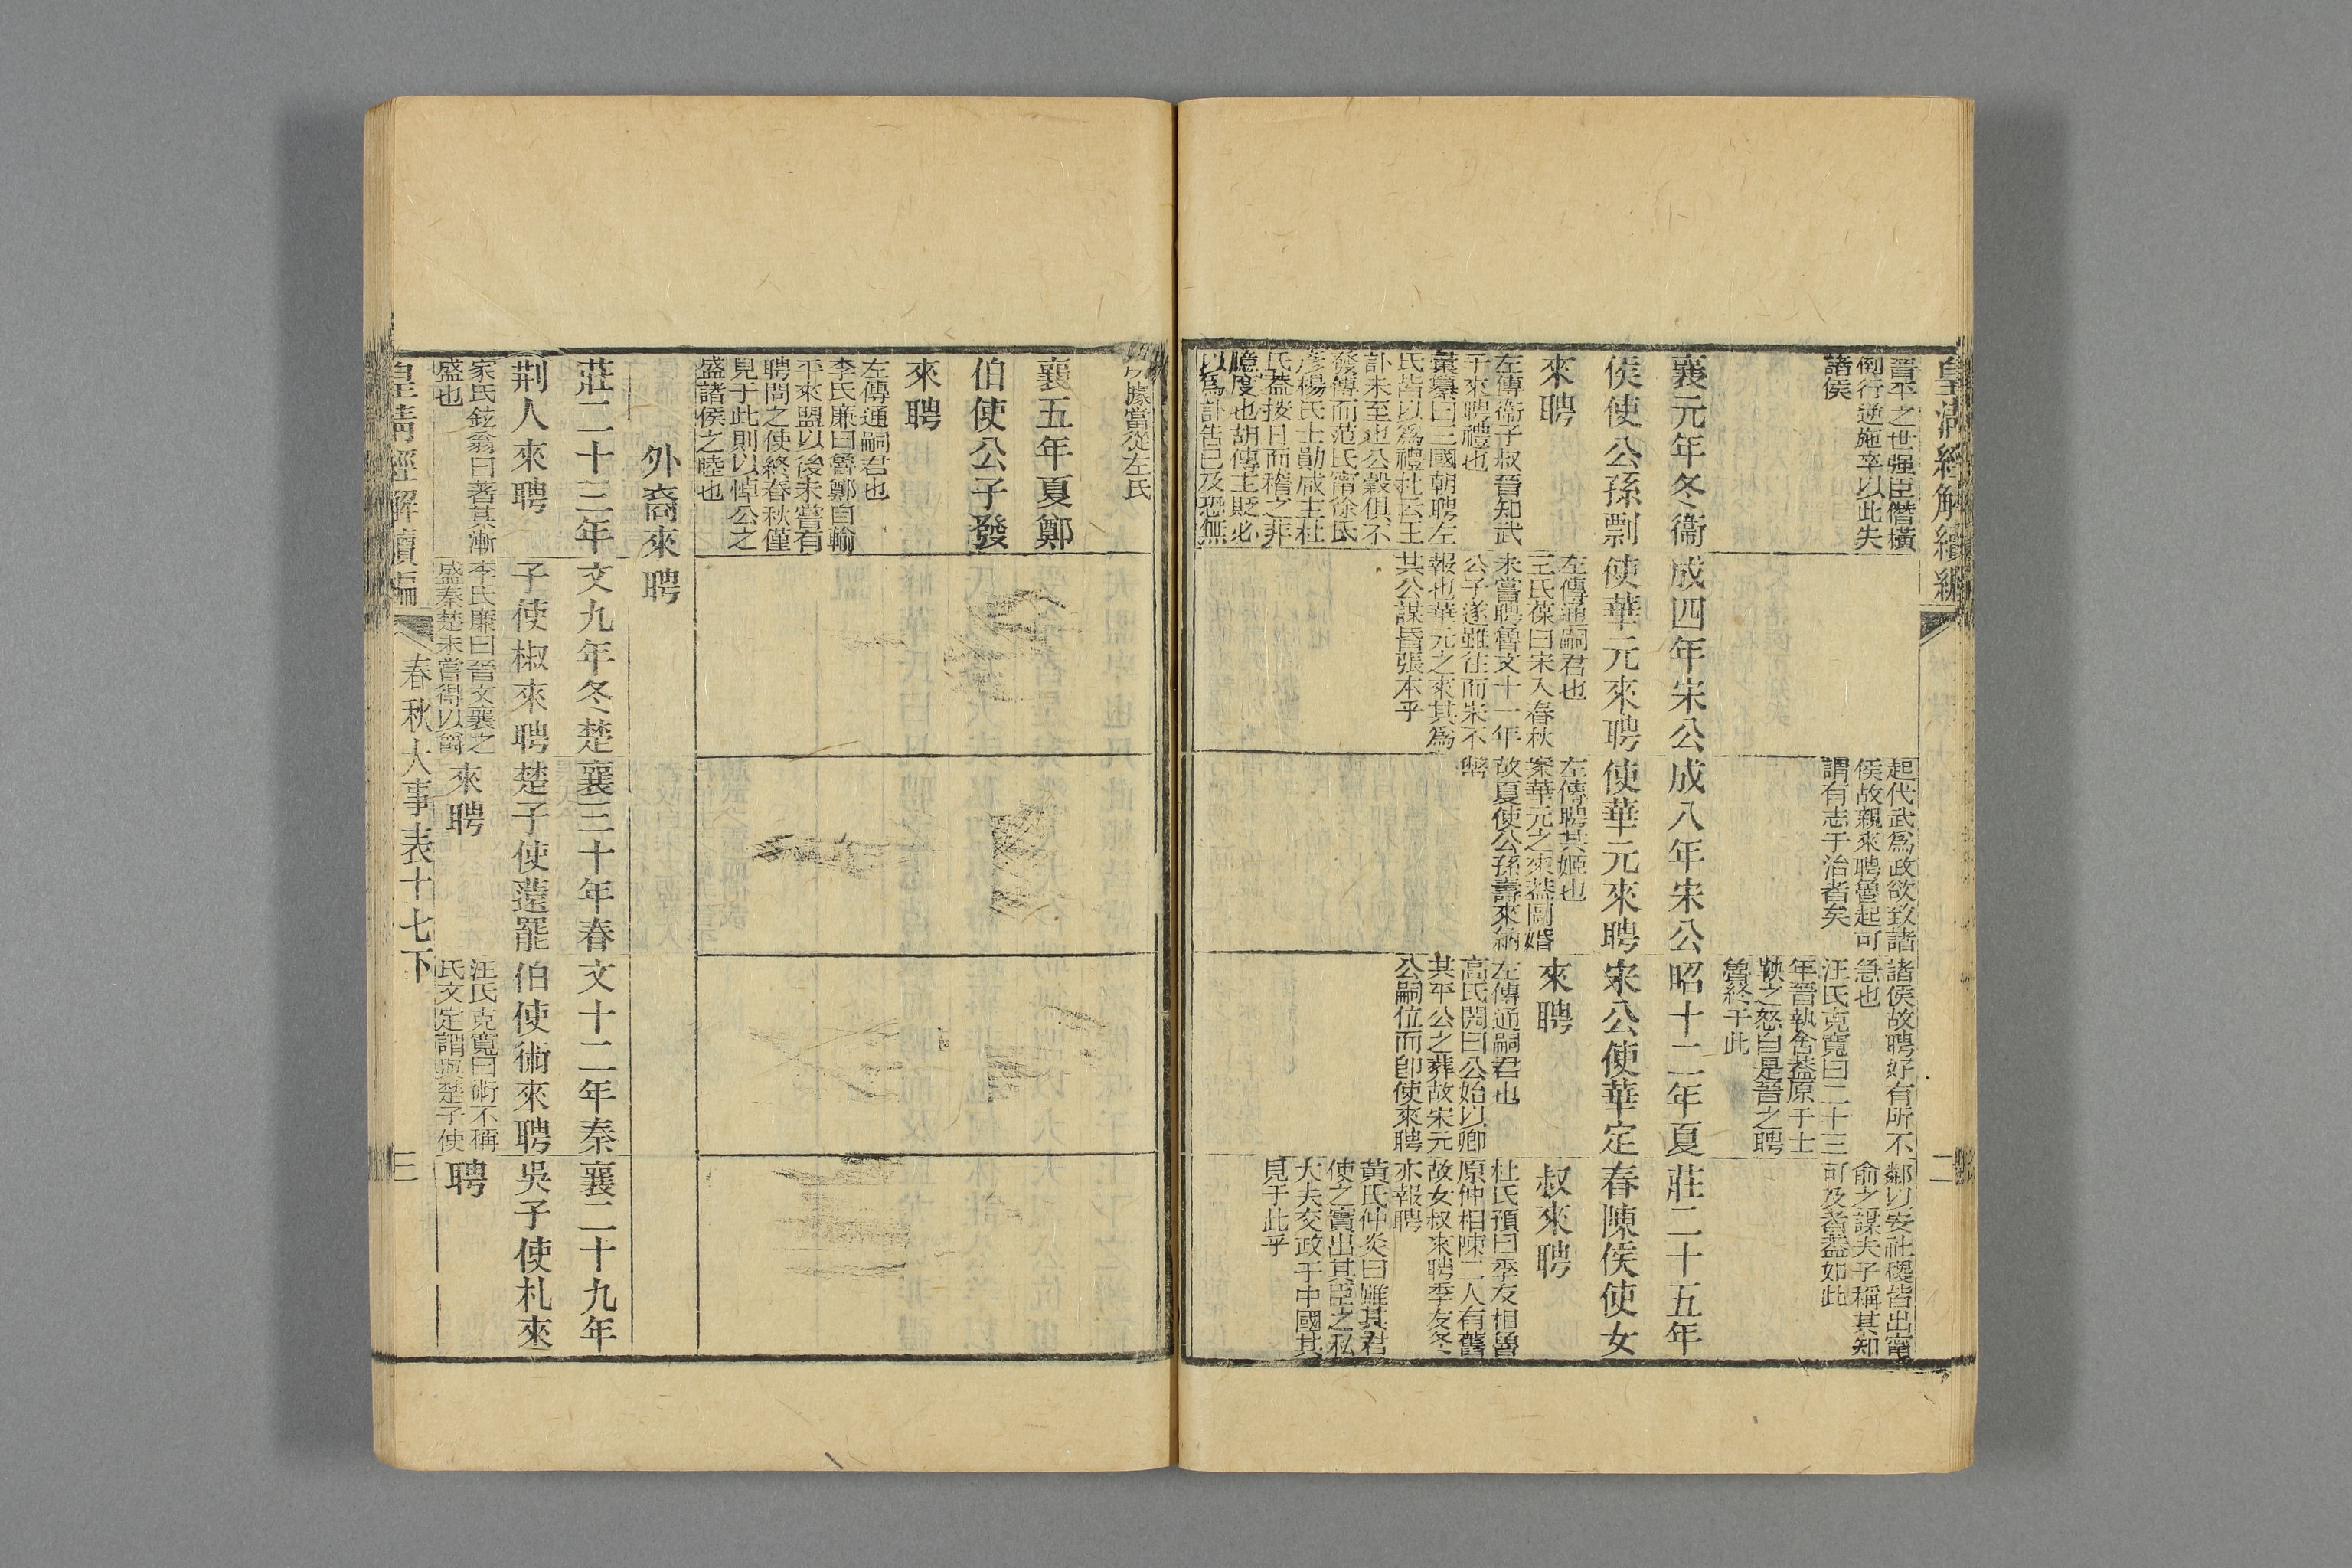 皇清經解續編
二
晉平之世强臣僭橫
倒行逆施卒以此失
諸侯
起代武爲政欲致諸
侯故親來聘魯起可
謂有志于治者矣
諸侯故聘好有所不
急也
汪氏克寬曰二十三
年晉執舍蓋原于士
鞅之怒自是晉之聘
魯終于此
鄰以安社稷皆出甯
俞之謀夫子稱其知
可及者蓋如此
襄元年冬衞
侯使公孫剽
來聘
左傳衞子叔晉知武
子來聘禮也
彙纂曰三國朝聘左
氏皆以爲禮杜云王
訃未至也公穀俱不
發傳而范氏甯徐氏
彥楊氏士勛咸主杜
氏蓋按日而稽之非
臆度也胡傳主貶必
以爲訃告已及恐無
成四年宋公
使華元來聘
左傳通嗣君也
王氏葆曰宋入春秋
未嘗聘魯文十一年
公子遂雖往而宋不
報也華元之來其爲
共公謀昏張本乎
成八年宋公
使華元來聘
左傳聘共姬也
案華元之來蓋圖婚
故夏使公孫壽來納
幣
昭十二年夏
宋公使華定
來聘
左傳通嗣君也
高氏閌曰公始以卿
共平公之葬故宋元
公嗣位而卽使來聘
莊二十五年
春陳侯使女
叔來聘
杜氏預曰季友相魯
原仲相陳二人有舊
故女叔來聘季友冬
亦報聘
黄氏仲炎曰雖其君
使之實出其臣之私
大夫交政于中國其
見于此乎
據當從左氏
襄五年夏鄭
伯使公子發
來聘
左傳通嗣君也
李氏廉曰魯鄭自輸
平來盟以後未嘗有
聘問之使終春秋僅
見于此則以悼公之
盛諸侯之睦也
外裔來聘
莊二十三年
荆人來聘
家氏鉉翁曰著其漸
盛也
文九年冬楚
子使椒來聘
李氏廉曰晉文襄之
盛秦楚未嘗得以爵
襄三十年春
楚子使薳罷
來聘
文十二年秦
伯使術來聘
汪氏克寬曰術不稱
氏文定謂與楚子使
襄二十九年
吳子使札來
聘
皇清經解續編
春秋大事表十七下
三